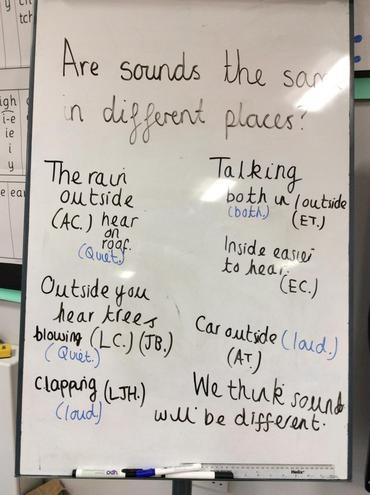 Are sounds the same
in different places?
The rain
outside
(AC.) hear
on
roof.
(Quiet.)
Outside you
hear trees
blowing (LC.) (JB.)
(Quiet.)
clapping (LJH.)
(loud.)
Talking
both in / outside
(both.) (ET.)
Inside easier
to hear.
(EC.)
Car outside (loud.)
(AT.)
We think sound
will be different.
igh
i-e
ie
i
y
y
tch
e ea
Helix